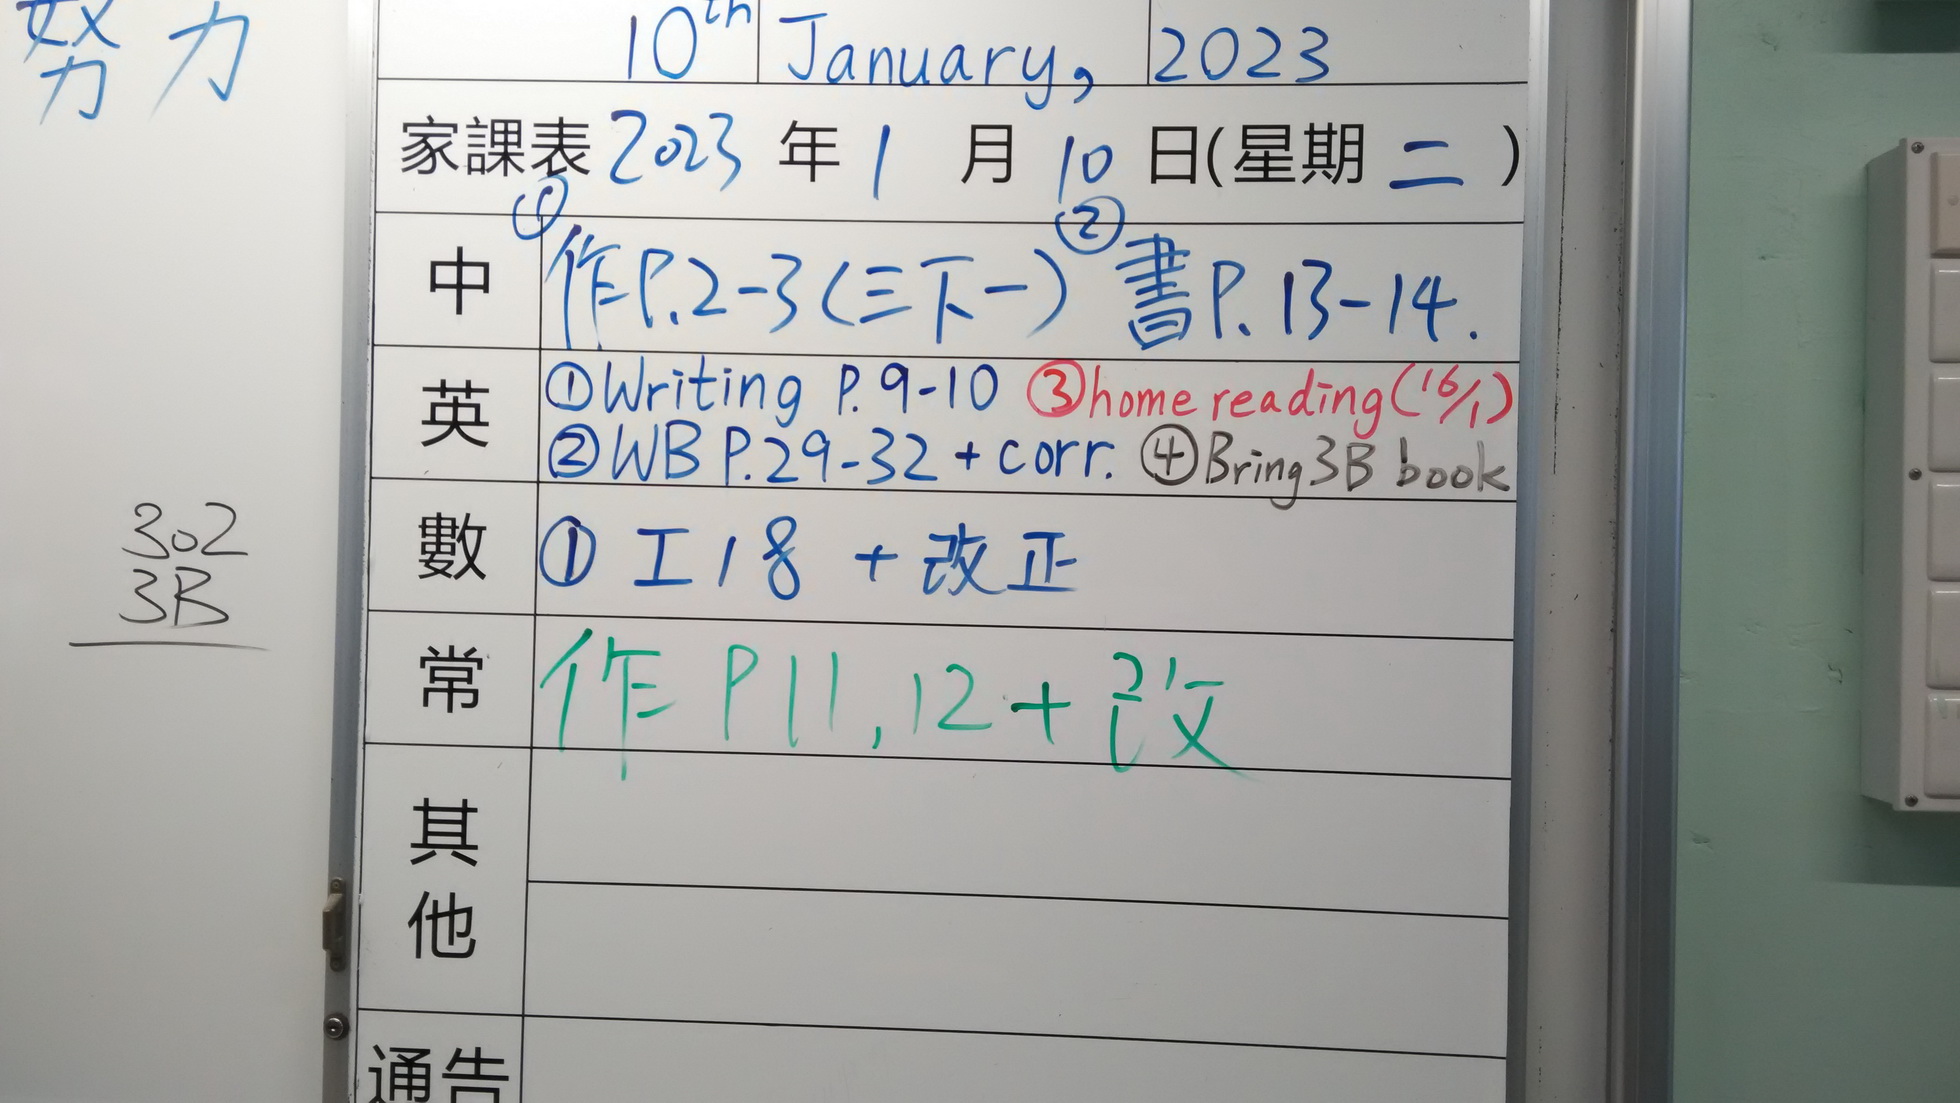 努力
10th January, 2023
家課表 2023 年 1 月 10 日(星期 二 )
中 ①作P.2-3(三下一) ②書P.13-14.
英 ①Writing P.9-10 ③home reading(16/1)
②WB P.29-32 + corr. ④Bring 3B book
數 ① 工18 + 改正
常 作 P11,12 + 改
其他
通告
302
3B